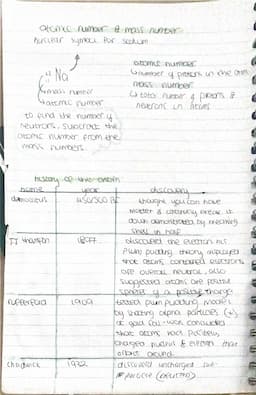 atomic number & mass number
nuclear symbol for sodium
Na
mass number
atomic number
to find the number of
neutrons, subtract the
atomic number from the
mass number.
atomic number
number of protons in the atom
mass number
total number of protons &
neutrons in
history of the atom
name year discovery
democritus BC thought you can have
matter &
down demonstrated by breaking
shell in half
JJ Thomson 1897 discovered the electron his
plum pudding theory displayed
that atoms contained electrons
are overall neutral, also
suggested atoms are positive
spheres of a positive charge
Rutherford 1909 tested plum pudding model
by shooting alpha particles (+)
at gold foil - concluded
that atoms have positively
charged nucleus & electrons that
orbit around
Chadwick 1932 discovered uncharged sub
particle (neutron)